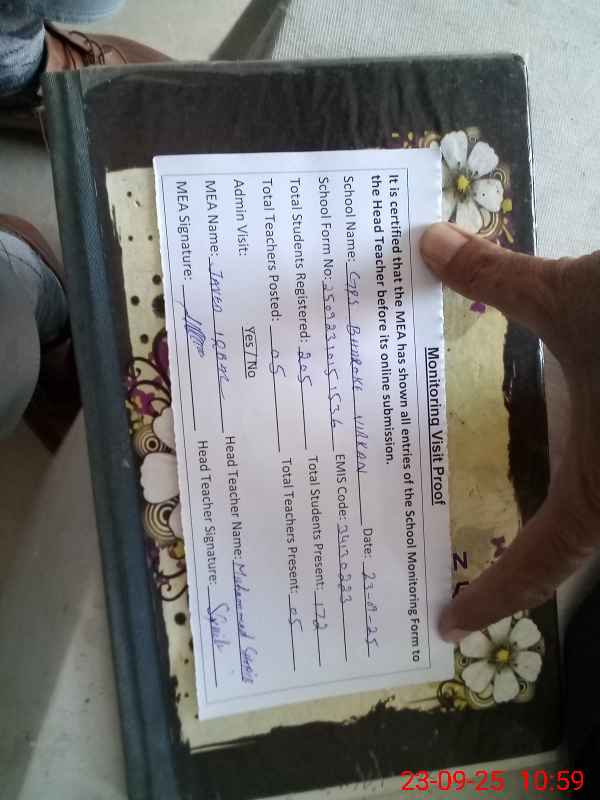 Monitoring Visit Proof
It is certified that the MEA has shown all entries of the School Monitoring Form to
the Head Teacher before its online submission.
School Name: GPS Date: 23-9-25
School Form No: 2509230151536 EMIS Code: 34130223
Total Students Registered: 205 Total Students Present: 172
Total Teachers Posted: 05 Total Teachers Present: 05
Admin Visit: Yes / No
MEA Name: JAVED IQBAL Head Teacher Name: Muhammad
MEA Signature: Head Teacher Signature:
23-09-25 10:59